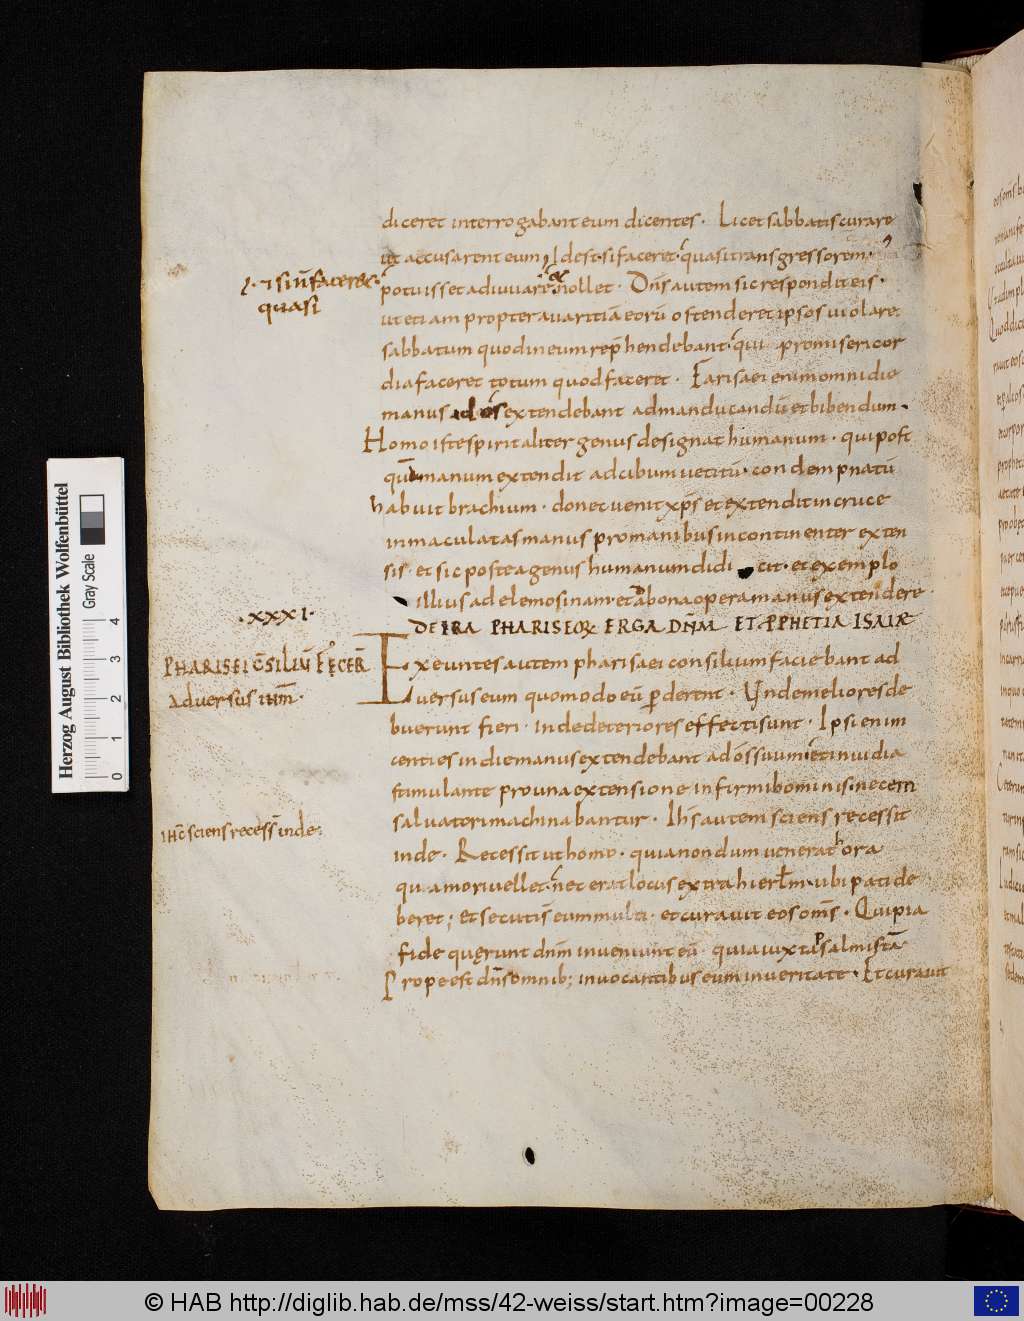 diceret interrogabant eum dicentes. Licet sabbatis curare
ut accusarent eum, Idest si faceret quasi transgressorem,
⁊ sin̄ faceret
quasi
potuisset adiuuare & nollet. Dn̄s autem sic respondit eis.
ut etiam propter auaritiā eorū ostenderet ipsos uiolare
sabbatum quod in eum rep̄hendebant. qui pro misericor
dia faceret totum quod faceret. Farisaei enim omni die
manus ad os extendebant ad manducandū et bibendum.
Homo iste spiritaliter genus designat humanum. qui post
quā manum extendit ad cibum uetitū. condempnatū
habuit brachium. donec uenit xp̄s et extendit in cruce
inmaculatas manus pro manibus incontinenter exten
sis. et sic postea genus humanum didicit. et exemplo
illius ad elemosinam. et ad bona opera manus extendere.
DE IRA PHARISEOꝜ ERGA DN̄M ET PPHETIA ISAIE
.XXXI.
PHARISEI CŌSILIŪ FECER̄
Aduersus ihm̄.
Exeuntes autem pharisaei consilium faciebant ad
uersus eum quomodo eū ꝑderent. Unde meliores de
buerunt fieri. inde deteriores effecti sunt. Ipsi enim
centies in die manus extendebant ad os suum. et inuidia
stimulante pro una extensione infirmi hominis. necem
saluatori machinabantur. Ihs̄ autem sciens recessit
ihc̄ sciens recess̄ inde:
inde. Recessit ut homo. quia nondum uenerat hora
qua mori uellet. nec erat locus extra hierłm. ubi pati de
beret; et secuti s̄ eum multi. et curauit eos om̄s. Qui pia
fide querunt dnm̄ inueniunt eū. quia iuxta psalmistā
Prope est dn̄s omnib; inuocantibus eum in ueritate. Et curauit
Herzog August Bibliothek Wolfenbüttel
Gray Scale
0 1 2 3 4
© HAB http://diglib.hab.de/mss/42-weiss/start.htm?image=00228